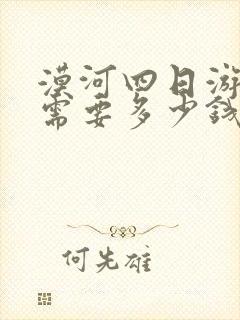 漠河四日游
需要多少钱
何先雄